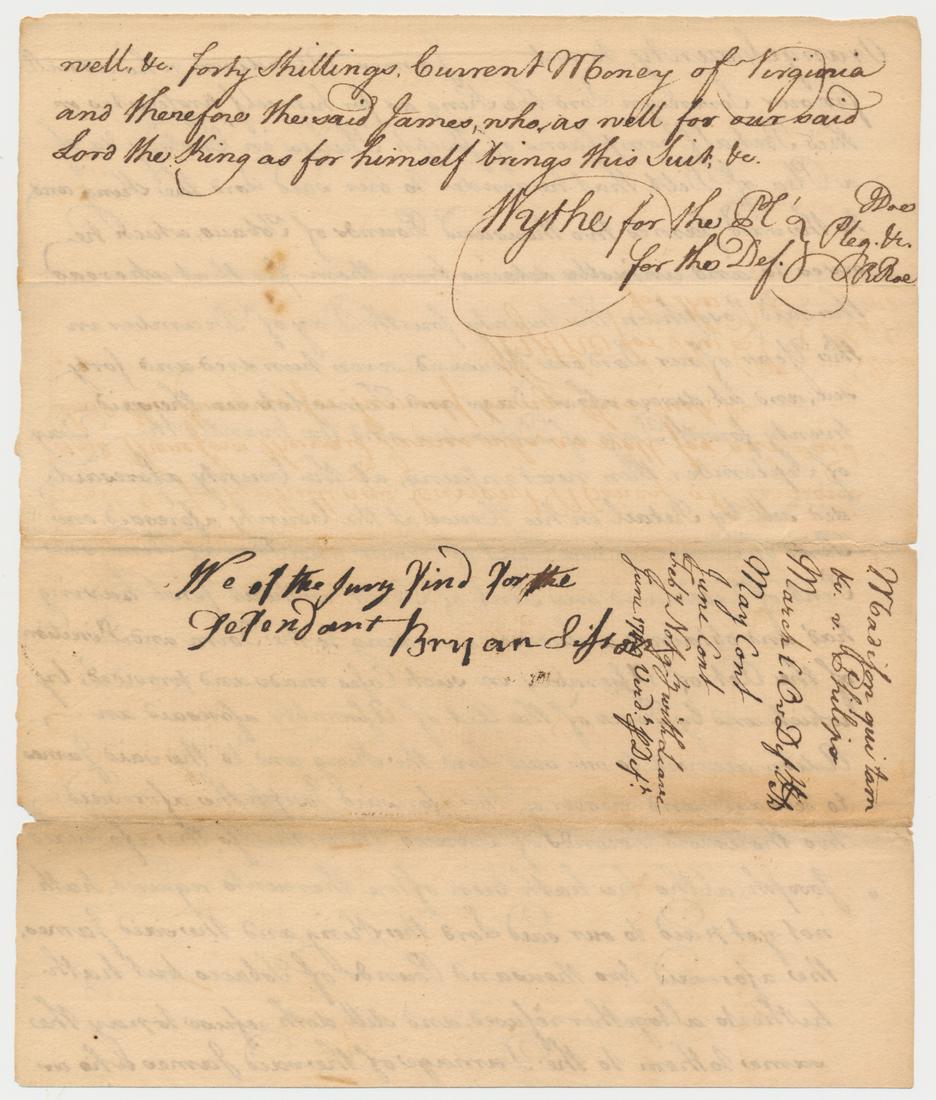 well, &c. forty Shillings, Current Money of Virginia
and therefore the said James, who, as well for our said
Lord the King as for himself brings this Suit, &c.
Wythe for the Pl'
for the Def.
JDoe
Pleg. &c.
RRoe
We of the Jury find for the
Defendant
Bryan Sisson
Madison qui tam
&c. v. Philips
March C Or Def.
May Cont
June Cont
Feby Not g'ty with Leave
June 1749 Verd.t p Def.t